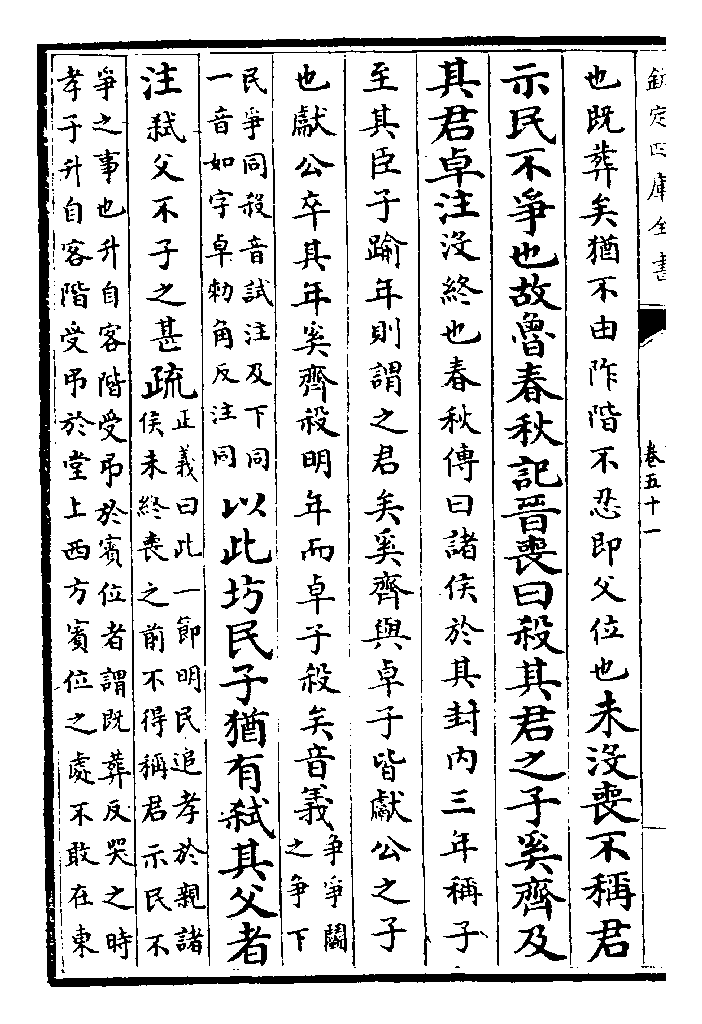 欽定四庫全書
卷五十一
也既葬矣猶不由阼階不忍即父位也未沒喪不稱君
示民不爭也故魯春秋記晉喪曰殺其君之子奚齊及
其君卓注沒終也春秋傳曰諸侯於其封內三年稱子
至其臣子踰年則謂之君矣奚齊與卓子皆獻公之子
也獻公卒其年奚齊殺明年而卓子殺矣音義
爭爭鬭
之爭下
民爭同殺音試注及下同
一音如字卓勑角反注同
以此坊民子猶有弑其父者
注弑父不子之甚疏
正義曰此一節明民追孝於親諸
侯未終喪之前不得稱君示民不
爭之事也升自客階受弔於賓位者謂既葬反哭之時
孝子升自客階受弔於堂上西方賓位之處不敢在東